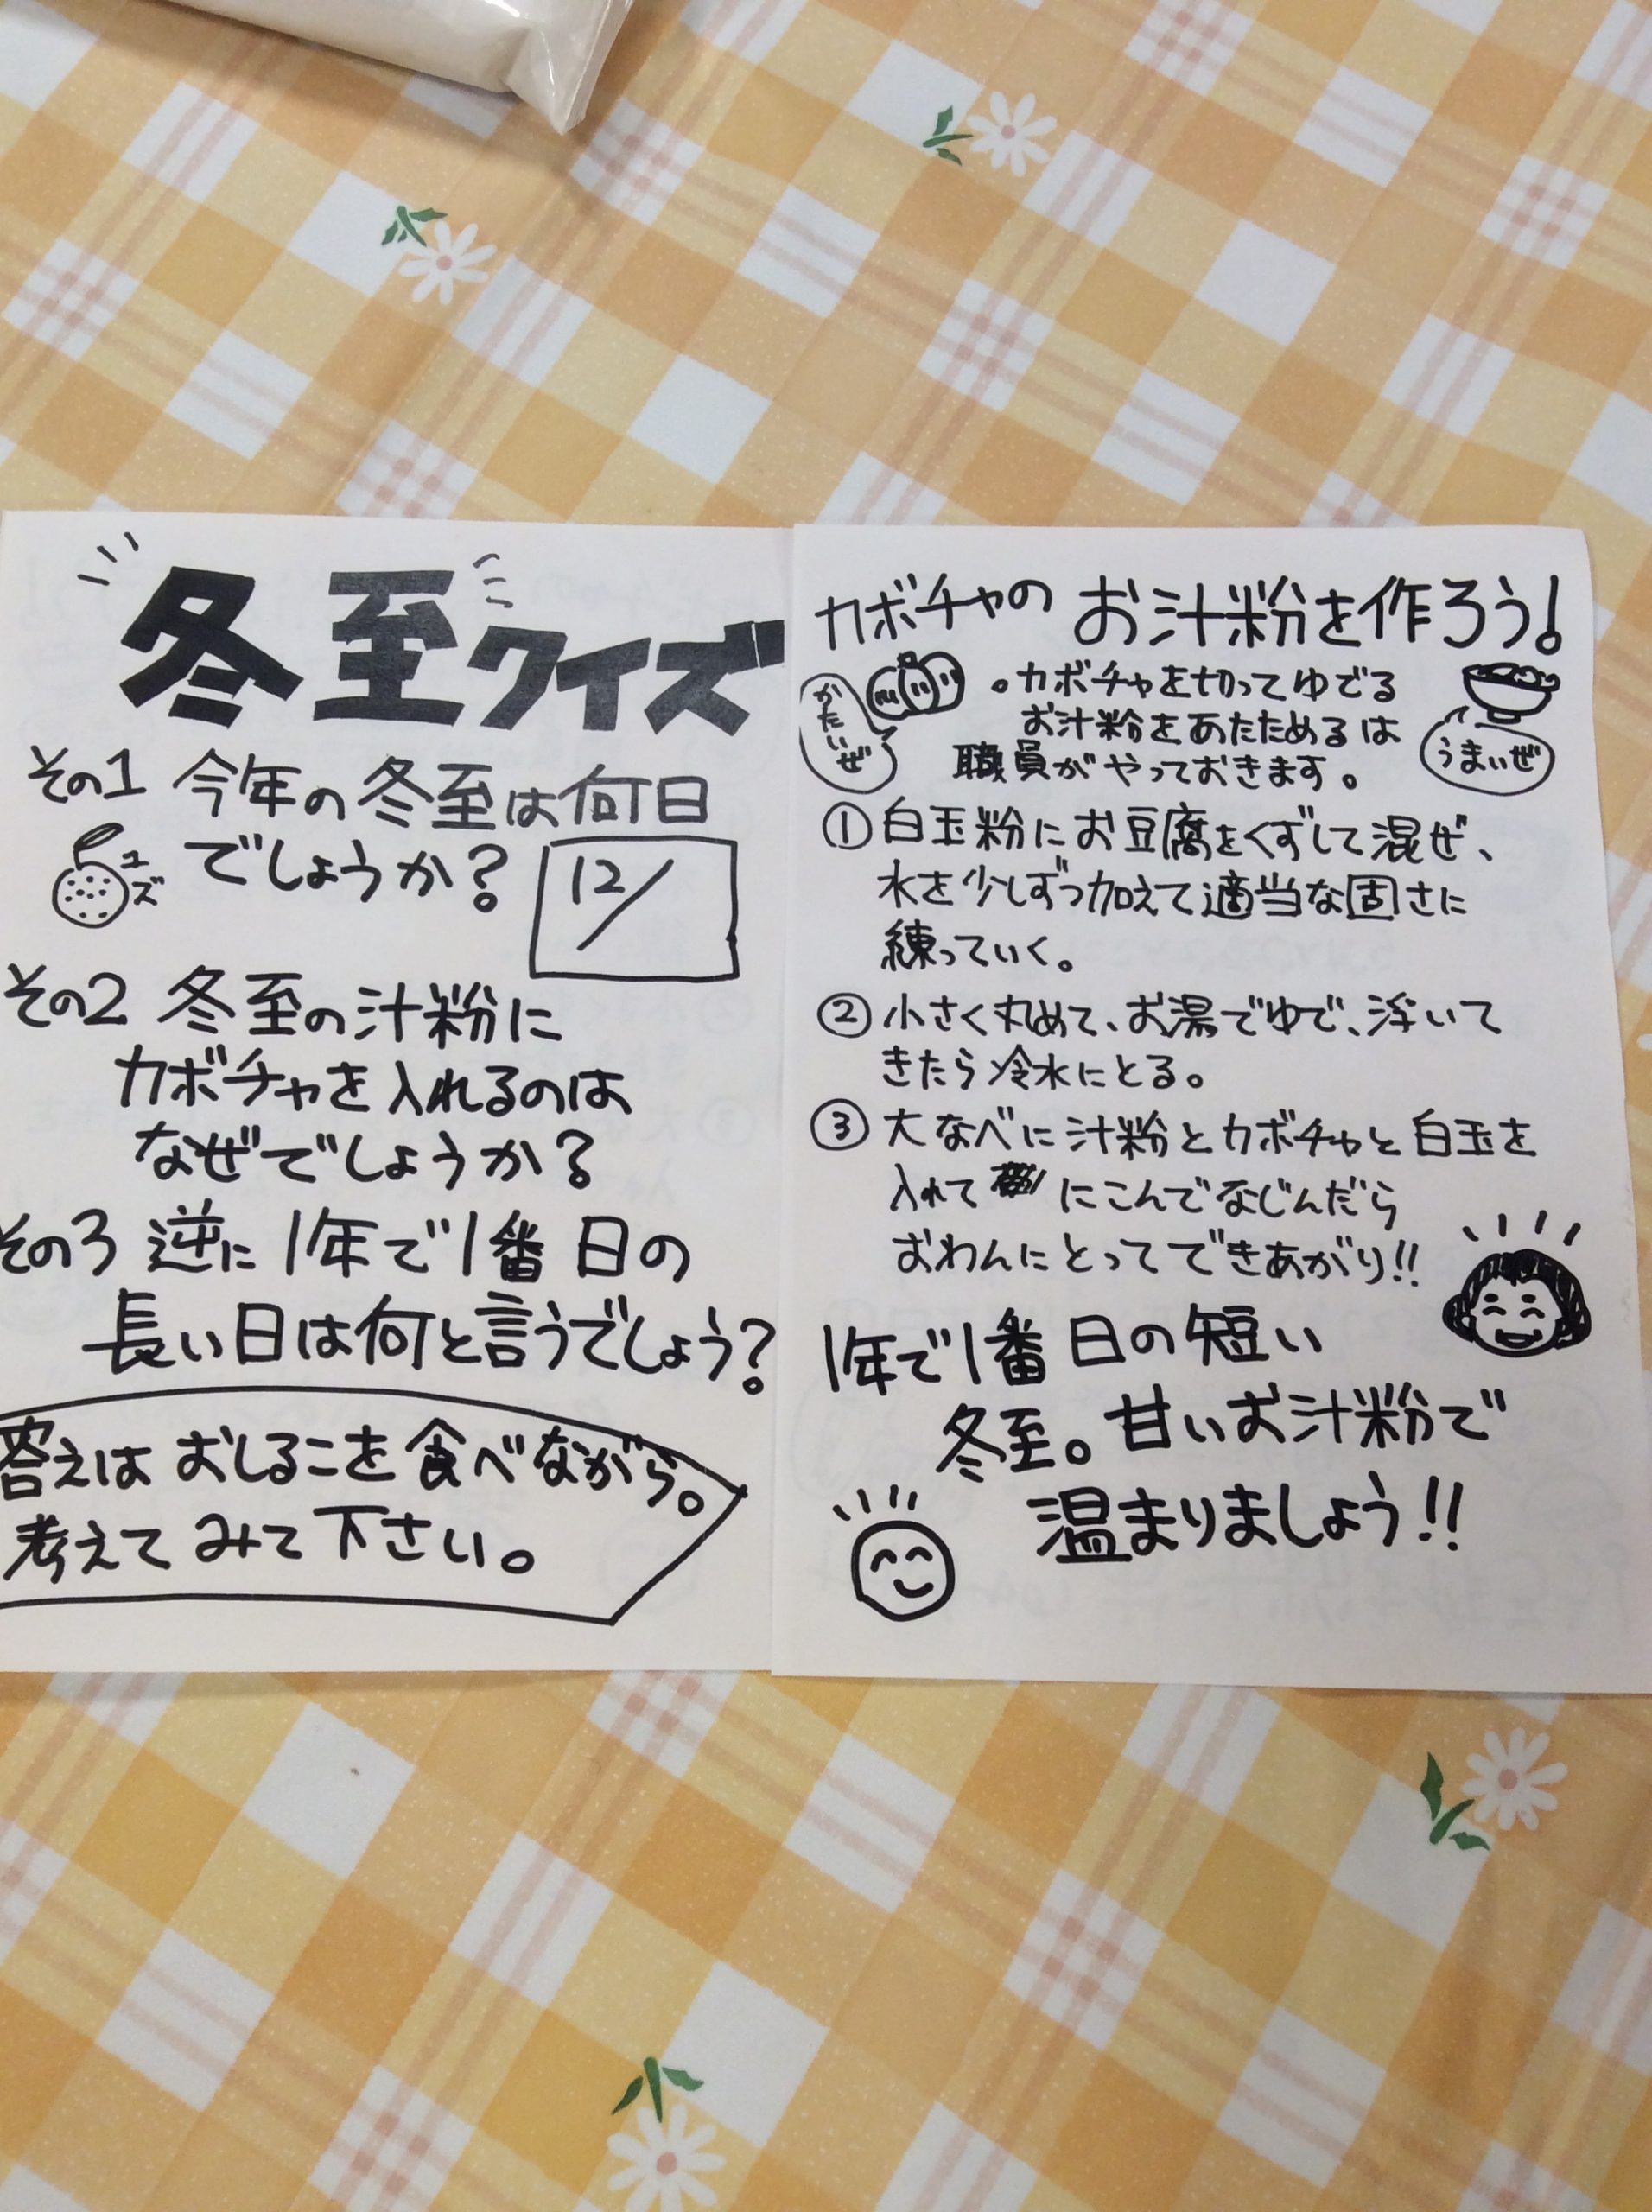 冬至クイズ
その1 今年の冬至は何日
でしょうか?
ユズ
12/
その2 冬至の汁粉に
カボチャを入れるのは
なぜでしょうか?
その3 逆に1年で1番日の
長い日は何と言うでしょう?
答えはおしるこを食べながら。
考えてみて下さい。
カボチャのお汁粉を作ろう!
かたいぜ
。カボチャを切ってゆでる
お汁粉をあたためるは
職員がやっておきます。
うまいぜ
①白玉粉にお豆腐をくずして混ぜ、
水を少しずつ加えて適当な固さに
練っていく。
②小さく丸めて、お湯でゆで、浮いて
きたら冷水にとる。
③大なべに汁粉とカボチャと白玉を
入れて にこんでなじんだら
おわんにとってできあがり!!
1年で1番日の短い
冬至。甘いお汁粉で
温まりましょう!!